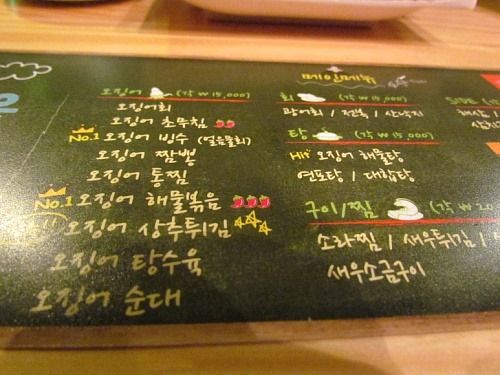 메인메뉴
오징어 (각 ₩ 15,000)
오징어회
오징어 초무침
No.1 오징어 빙수 (얼음물회)
오징어 짬뽕
오징어 통찜
No.1 오징어 해물볶음
오징어 상추튀김
오징어 탕수육
오징어 순대
회 (각 ₩ 15,000)
광어회 / 전복 / 산낙지
탕 (각 ₩ 15,000)
Hit 오징어 해물탕
연포탕 / 대합탕
구이/찜 (각 ₩
소라찜 / 새우튀김 /
새우소금구이
SIDE